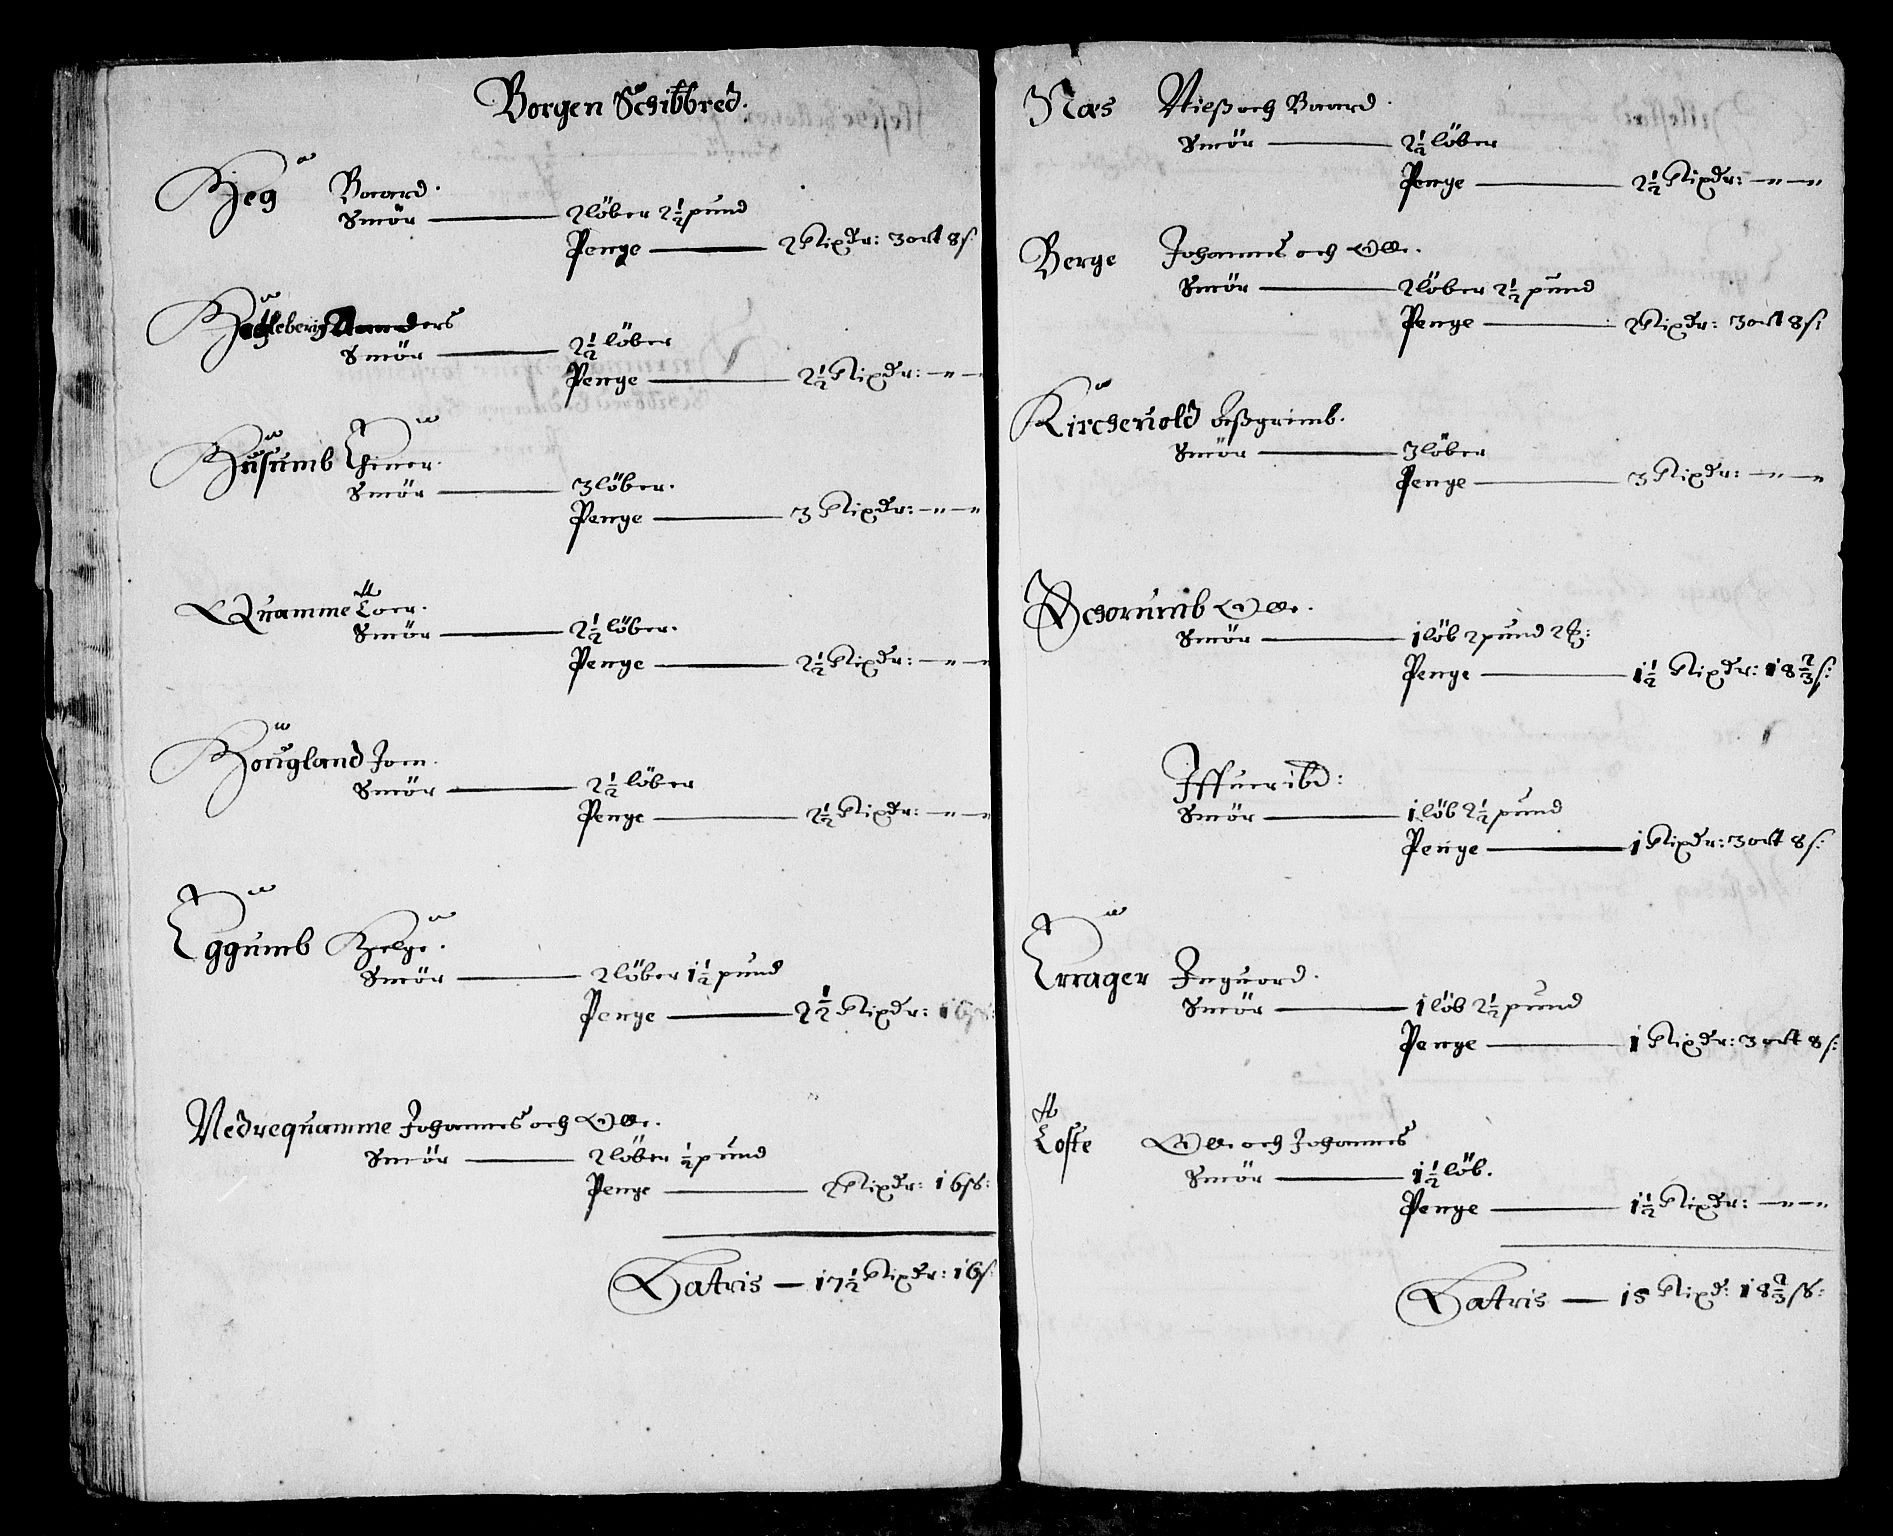 Borgen Schibbred.
Heg Baard.
Smör — 2 löber 2½ pund
Penge — 2 Rixdr: 3 ort 8 s:
Hegleberg Anders
Smör — 2½ löber
Penge — 2½ Rixdr: — " — "
Husumb Einer.
Smör — 3 löber.
Penge — 3 Rixdr: — " — "
Quamme Loer.
Smör — 2½ löber.
Penge — 2½ Rixdr: — " — "
Hougland Jon.
Smör — 2½ löber
Penge — 2½ Rixdr: — " — "
Eggumb Helge.
Smör — 2 löber 1½ pund
Penge — 2½ Rixdr: 16 s:
Nedrequamme Johannes och Olle.
Smör — 2 löber ½ pund
Penge — 2 Rixdr: 16 ss:
Latris — 17½ Rixdr: 16 s:
Næs Nielß och Baard.
Smör — 2½ löber
Penge — 2½ Rixdr: — " — "
Berge Johannes och Olle.
Smör — 2 löber 2½ pund
Penge — 2 Rixdr: 3 ort 8 s:
Kircheuold Aßgrimb.
Smör — 3 löber
Penge — 3 Rixdr: — " — "
Schorumb Olle.
Smör — 1 löb 2 pund 2 ℔:
Penge — 1½ Rixdr: 18 2/3 s:
Iffuer ibd:
Smör — 1 löb 2½ pund
Penge — 1 Rixdr: 3 ort 8 s:
Erager Inguord.
Smör — 1 löb 2½ pund
Penge — 1 Rixdr: 3 ort 8 s:
Lofte Olle och Johannes
Smör — 1½ löb.
Penge — 1½ Rixdr: — " — "
Latris — 15 Rixd: 18 2/3 ss: